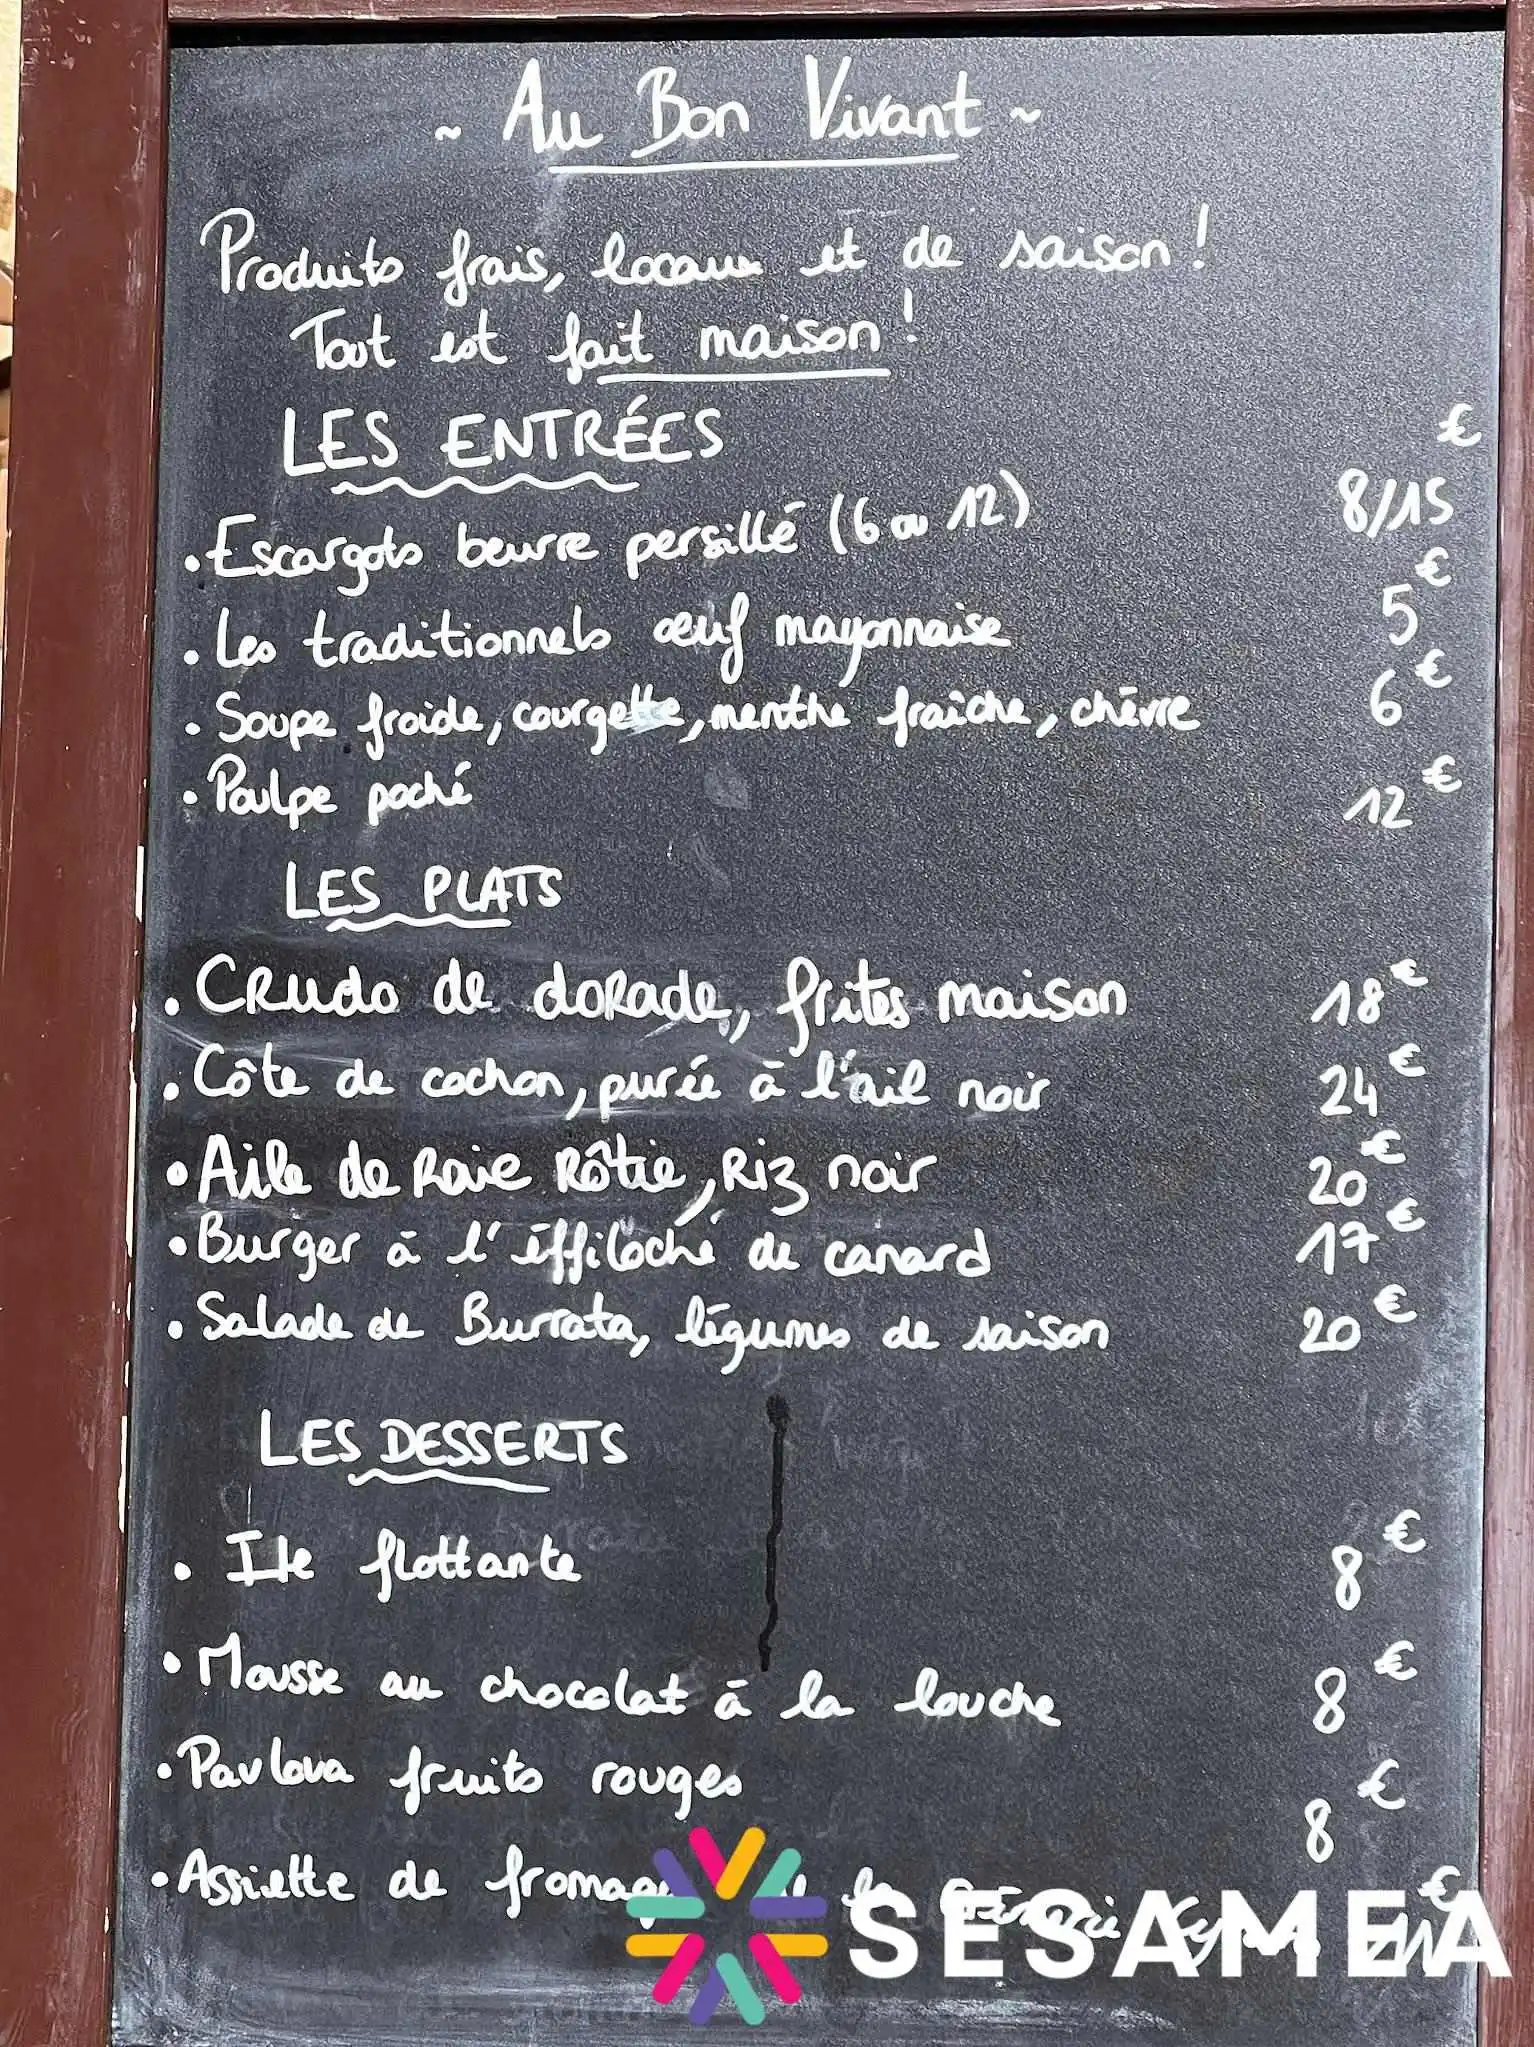 ~ Au Bon Vivant ~
Produits frais, locaux et de saison !
Tout est fait maison !
LES ENTRÉES
• Escargots beurre persillé (6 ou 12) 8/15 €
• Les traditionnels œuf mayonnaise 5 €
• Soupe froide, courgette, menthe fraîche, chèvre 6 €
• Poulpe poché 12 €
LES PLATS
• Crudo de dorade, frites maison 18 €
• Côte de cochon, purée à l'ail noir 24 €
• Aile de Raie Rôtie, Riz noir 20 €
• Burger à l'éffiloché de canard 17 €
• Salade de Burrata, légumes de saison 20 €
LES DESSERTS
• Ile flottante 8 €
• Mousse au chocolat à la louche 8 €
• Pavlova fruits rouges 8 €
• Assiette de €
SESAMEA